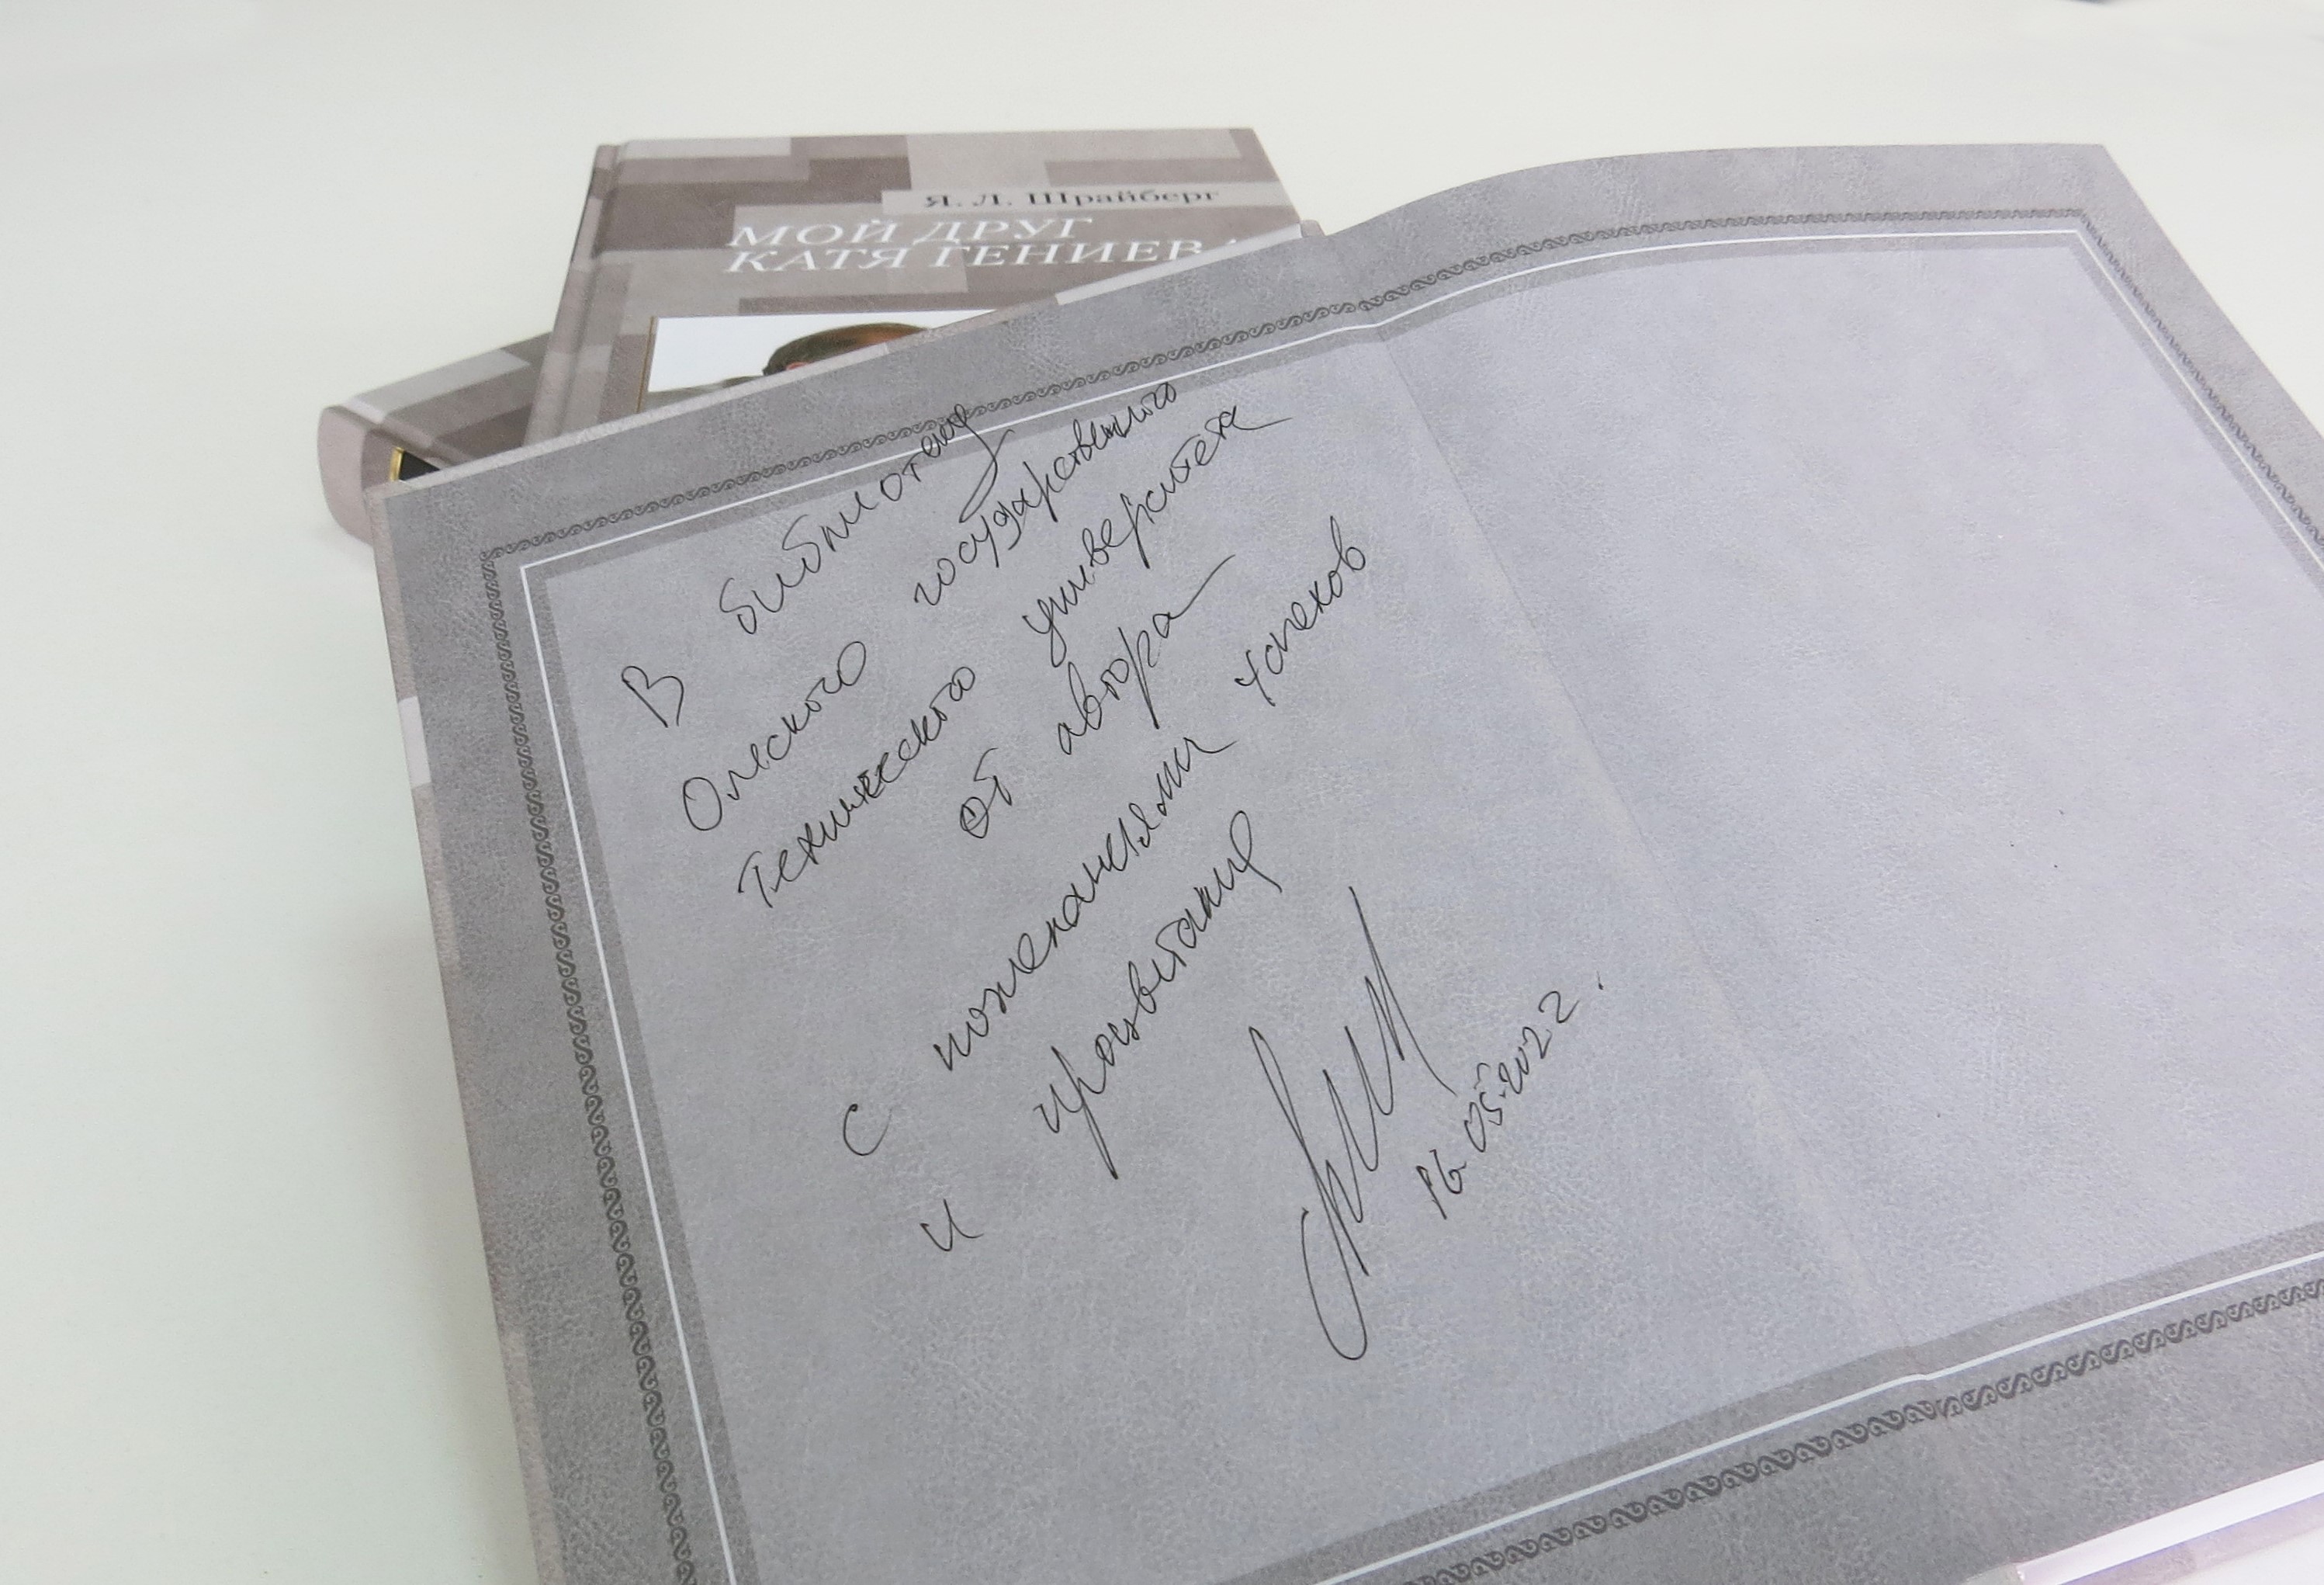 Я. Л. Шрайберг
МОЙ ДРУГ
КАТЯ ГЕНИЕВА
В библиотеку
Омского государственного
технического университета
от автора
с пожеланиями успехов
и процветания
16.05.2022.